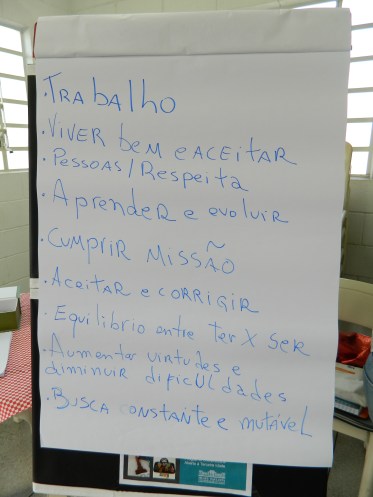 · TRAbAlho
· VIVER bem e ACEITAR
· PESSOAS / Respeita
· Aprender e evoluir
· CUMPRIR MISSÃO
· Aceitar e CORRIGIR
· Equilibrio entre ter X SER
· Aumentar virtudes e
diminuir dificuldades
· Busca constante e mutável